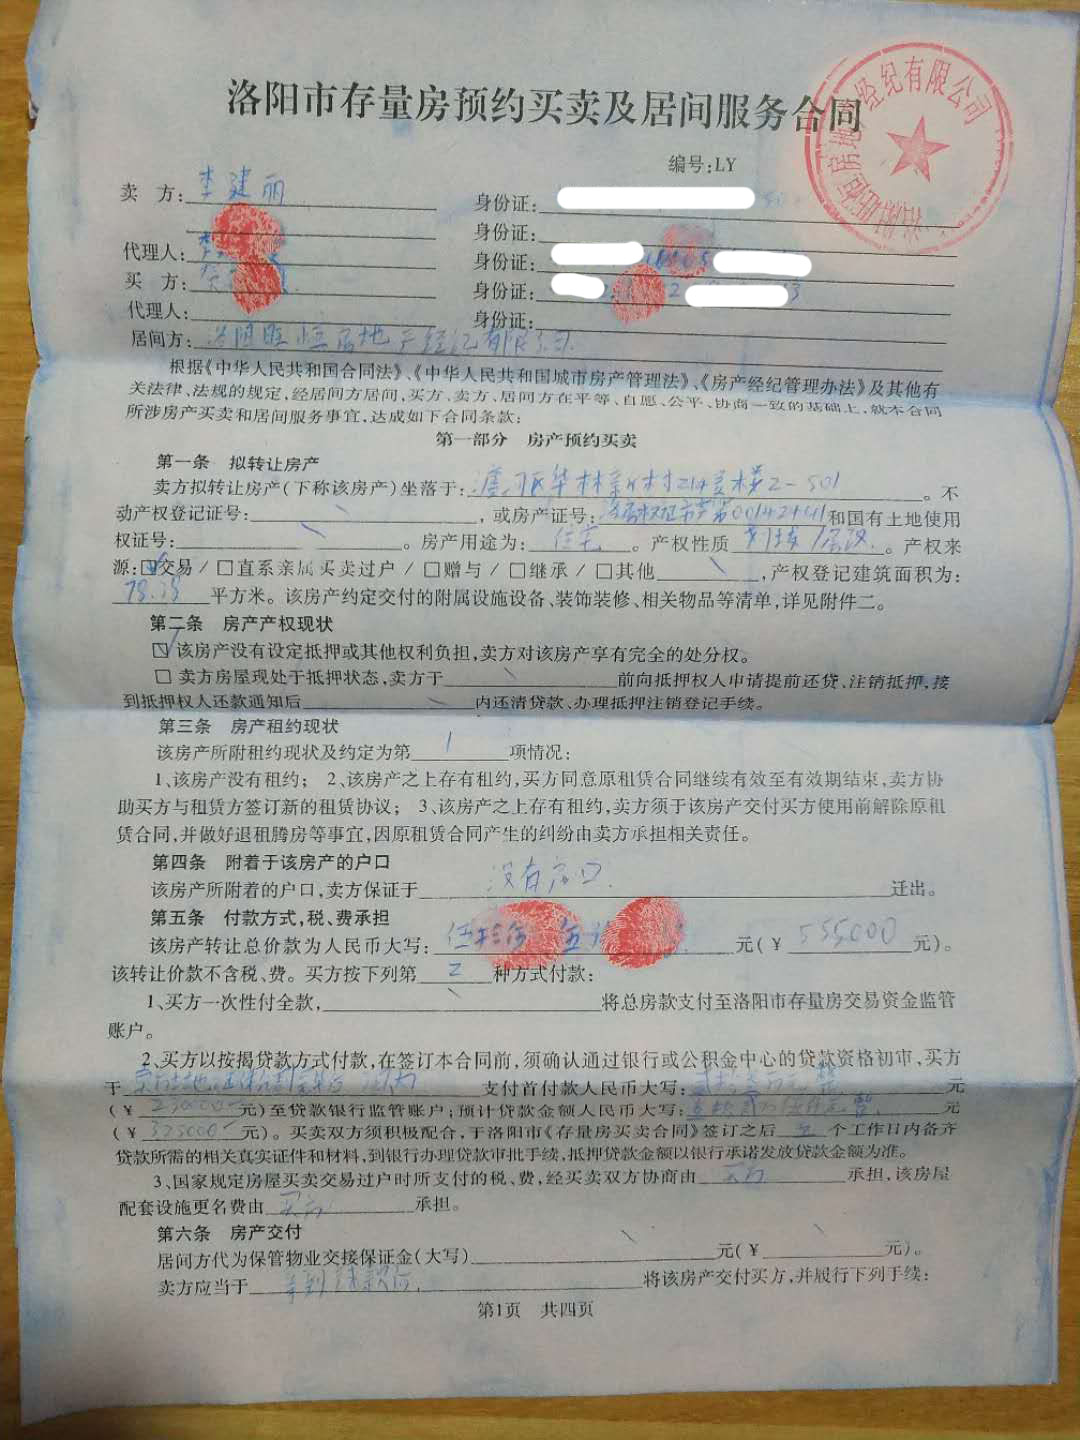 洛阳市存量房预约买卖及居间服务合同
编号:LY
房地产经纪有限公司
卖 方: 李建丽 身份证:
身份证:
代理人: 身份证:
买 方: 身份证:
代理人: 身份证:
居间方: 洛阳 恒房地产经纪有限公司
根据《中华人民共和国合同法》、《中华人民共和国城市房产管理法》、《房产经纪管理办法》及其他有
关法律、法规的规定、经居间方居间,买方、卖方、居间方在平等、自愿、公平、协商一致的基础上,就本合同
所涉房产买卖和居间服务事宜,达成如下合同条款:
第一部分 房产预约买卖
第一条 拟转让房产
卖方拟转让房产(下称该房产)坐落于: 瀍河区华林新村214 楼2-501 。不
动产权登记证号: ,或房产证号: 洛房权证市字第00142441和国有土地使用
权证号: 。房产用途为: 住宅 。产权性质 房改 。产权来
源:☑交易/□直系亲属买卖过户/□赠与/□继承/□其他 ,产权登记建筑面积为:
平方米。该房产约定交付的附属设施设备、装饰装修、相关物品等清单,详见附件二。
第二条 房产产权现状
☑该房产没有设定抵押或其他权利负担,卖方对该房产享有完全的处分权。
□ 卖方房屋现处于抵押状态,卖方于 前向抵押权人申请提前还贷、注销抵押,接
到抵押权人还款通知后 内还清贷款、办理抵押注销登记手续。
第三条 房产租约现状
该房产所附租约现状及约定为第 1 项情况:
1、该房产没有租约; 2、该房产之上存有租约,买方同意原租赁合同继续有效至有效期结束,卖方协
助买方与租赁方签订新的租赁协议; 3、该房产之上存有租约,卖方须于该房产交付买方使用前解除原租
赁合同,并做好退租腾房等事宜,因原租赁合同产生的纠纷由卖方承担相关责任。
第四条 附着于该房产的户口
该房产所附着的户口,卖方保证于 没有户口 迁出。
第五条 付款方式,税、费承担
该房产转让总价款为人民币大写: 伍拾伍 伍 元(¥ 555000 元)。
该转让价款不含税、费。买方按下列第 2 种方式付款:
1、买方一次性付全款, 将总房款支付至洛阳市存量房交易资金监管
账户。
2、买方以按揭贷款方式付款,在签订本合同前,须确认通过银行或公积金中心的贷款资格初审,买方
于 支付首付款人民币大写: 贰拾叁万元整 元
(¥ 230000 元)至贷款银行监管账户;预计贷款金额人民币大写: 叁拾贰万伍仟元整 元
(¥ 325000 元)。买卖双方须积极配合,于洛阳市《存量房买卖合同》签订之后 五 个工作日内备齐
贷款所需的相关真实证件和材料,到银行办理贷款审批手续,抵押贷款金额以银行承诺发放贷款金额为准。
3、国家规定房屋买卖交易过户时所支付的税、费,经买卖双方协商由 买方 承担,该房屋
配套设施更名费由 买方 承担。
第六条 房产交付
居间方代为保管物业交接保证金(大写) 元(¥ 元)。
卖方应当于 将该房产交付买方,并履行下列手续:
第1页 共四页